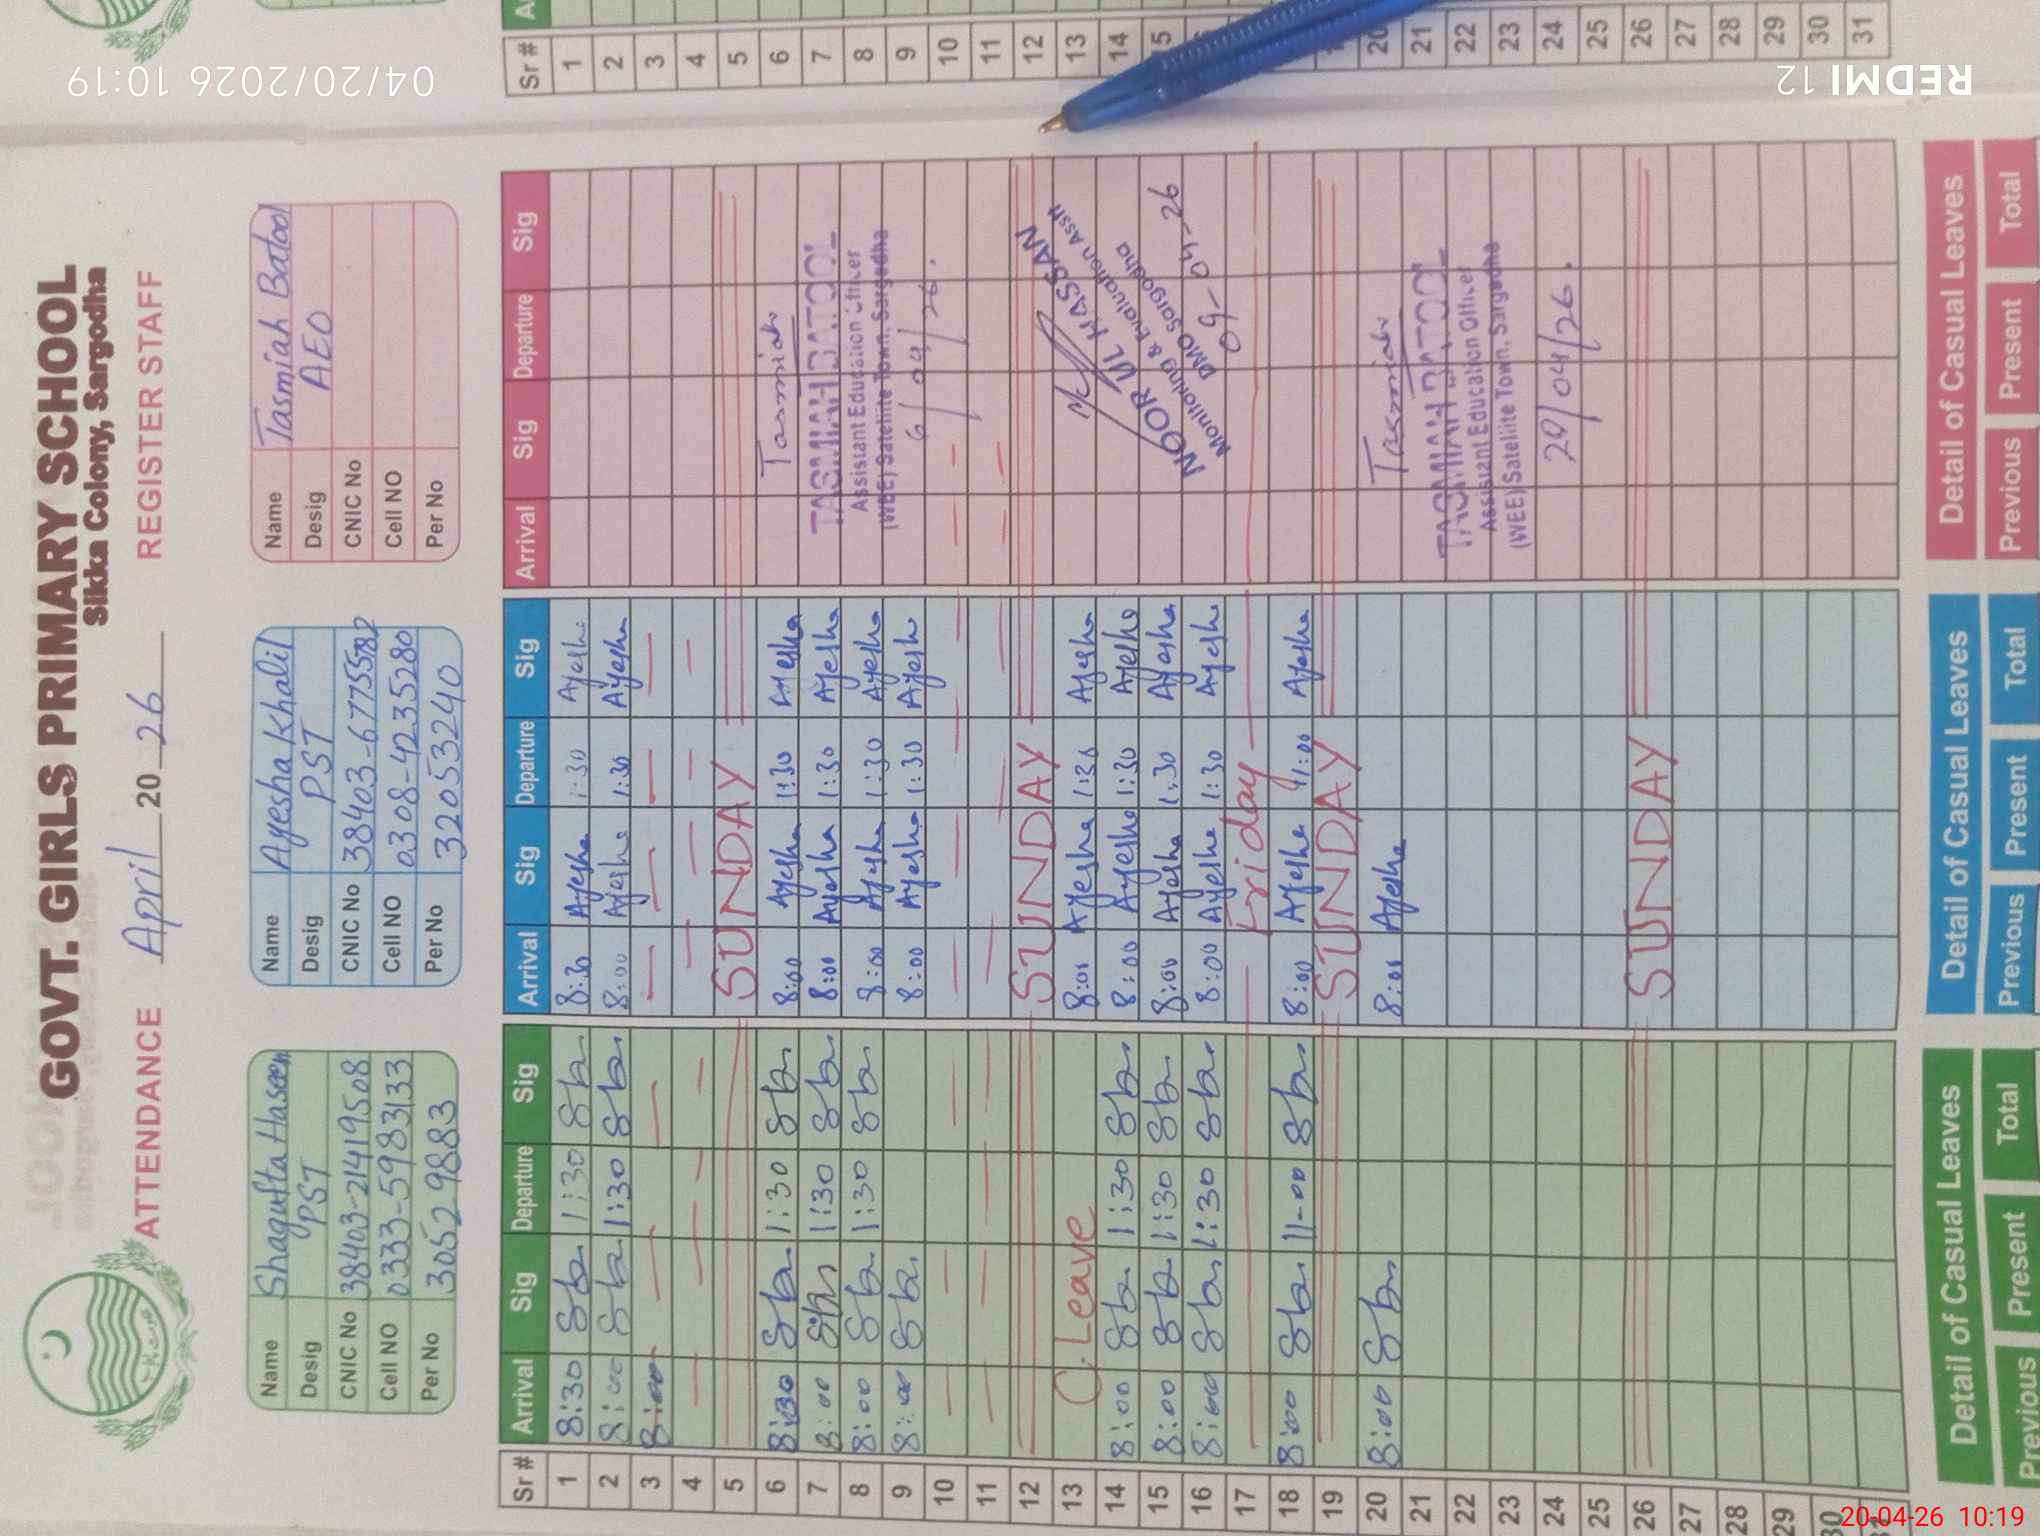 GOVT. GIRLS PRIMARY SCHOOL
Sikka Colony, Sargodha
ATTENDANCE April 2026 REGISTER STAFF
Name Shagufta Haseen
Desig PST
CNIC No 38403-21419508
Cell NO 0333-5983133
Per No 30529883
Name Ayesha Khalil
Desig PST
CNIC No 38403-6775582
Cell NO 0308-4235280
Per No 32053240
Name Tasmiah Batool
Desig AEO
CNIC No
Cell NO
Per No
Sr # Arrival Sig Departure Sig Arrival Sig Departure Sig Arrival Sig Departure Sig
1 8:30 1:30 8:30 Ayesha 1:30 Ayesha
2 8:00 1:30 8:00 Ayesha 1:30 Ayesha
3 8:00
4
5 SUNDAY
6 8:30 1:30 8:00 Ayesha 1:30 Ayesha Tasmiah
7 8:00 1:30 8:00 Ayesha 1:30 Ayesha TASMIAH BATOOL
8 8:00 1:30 8:00 Ayesha 1:30 Ayesha Assistant Education Officer
9 8:00 8:00 Ayesha 1:30 Ayesha (WEE) Satellite Town, Sargodha
6/04/26.
10
11
12 SUNDAY
13 C. Leave 8:00 Ayesha 1:30 Ayesha
14 8:00 1:30 8:00 Ayesha 1:30 Ayesha
15 8:00 1:30 8:00 Ayesha 1:30 Ayesha
16 8:00 1:30 8:00 Ayesha 1:30 Ayesha
NOOR UL HASSAN
Monitoring & Evaluation Asstt
DMO Sargodha
09-04-26
17 Friday
18 8:00 11-00 8:00 Ayesha 11:00 Ayesha
19 SUNDAY
20 8:00 8:00 Ayesha Tasmiah
21
22 TASMIAH BATOOL
Assistant Education Officer
23 (WEE) Satellite Town, Sargodha
24 20/04/26.
25
26 SUNDAY
27
28
29
30
Detail of Casual Leaves
Previous Present Total
Detail of Casual Leaves
Previous Present Total
Detail of Casual Leaves
Previous Present Total
Sr #
1
2
3
4
5
6
7
8
9
10
11
12
13
14
20
21
22
23
24
25
26
27
28
29
30
31
04/20/2026 10:19
REDMI 12
20-04-26 10:19